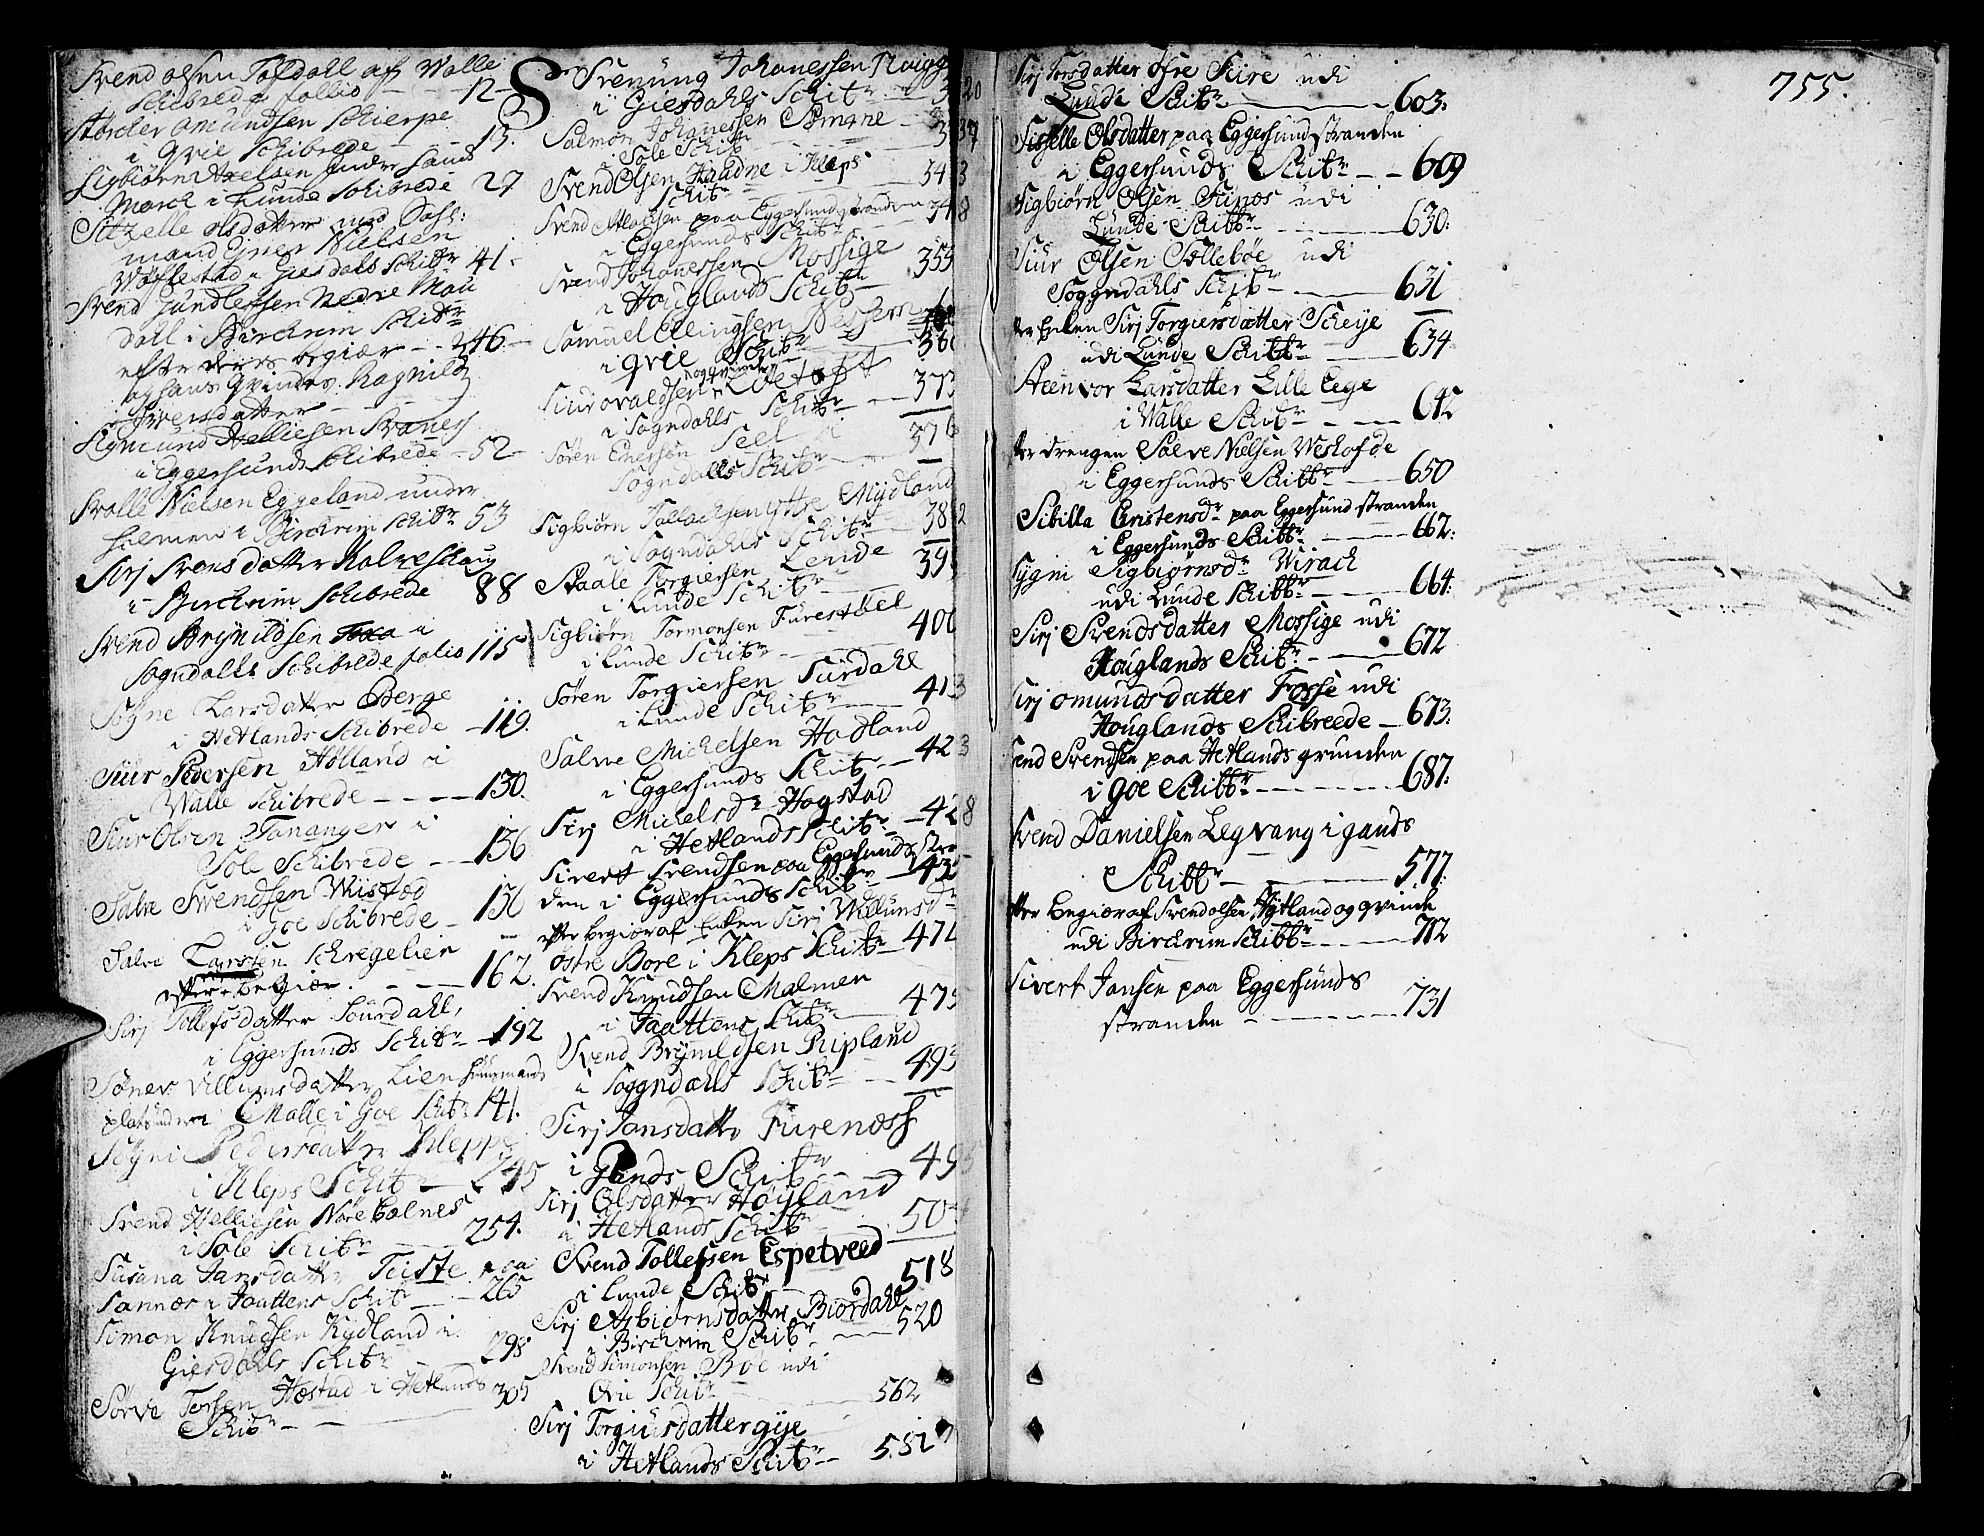 Svend olsen Tofdall af Walle
Schibrede follio - - - 12
Størcler omundsen Schierpe
i qvie Schibrede - - 13.
Sigbiørn Axelsen under Sand
March i Lunde Schibrede 27
Sitzelle olsdatter med
mand Ejner Nielsen
i Giesdals Schibr 41 -
Svend Gundlefsen Nedre Mau
dall i Birchrim Schibr
efter deris begiær - - 246. -
og hans qvindes Ragnild
Iversdatter - - - -
Sigmund Helliesen Svanes
i Eggersund Schibrede - 52
Svalle Nielsen Eggeland under
i Birchrim Schibr 53
Sirj Svensdatter Kolneshaug
i Birchrim Schibrede 88
Svend Brynildsen i
Sogndalls Schibrede folio 115
Søgne Larsdatter Berge
i Hetlands Schibrede - 119.
Siur Pedersen Hølland i
Walle Schibrede - - - - 130.
Siur Olsen Tananger i
Sole Schibrede - - 136
Salve Svendsen Wistad
i Goe Schibrede - 136
Salve Larssen Schregelien
efter begiær. - - - 162.
Sirj Tollefsdatter Sourdahl,
i Eggersunds Schibr - 192
Søner Villumsdatter Lien huusmands
plats under Malle i Goe Schibr 141.
Søgni Pedersdatter Kleppe
i Kleps Schibr - 245
Svend Helliesen Nore Colnes
i Sole Schibr - - 254.
Susana Jansdatter Teiste paa
Sannæs i Jaattens Schibr - - 265
Simon Knudsen Kydland i
Giesdahls Schibr - 298
Sørve Torsen Hæstad i Hetlands 305
Schibr - -
S Svenung Johanessen
i Giesdahls Schibr - - 320
Salmon Johanessen Sømme - 337
i Sole Schibr
Svend Olsen Haadne i Kleps 343
Schibr
Svend paa Eggersundstranden 348
i Eggersunds Schibr
Svend Johanessen Mossige
i Houglands Schibr - 355
Samuel Ellingsen
i qvie Schibr 360
Siur ovaldsen og qvinde
i Sogndahls Schibr - - 373
Søren Enersøn Seel i
Sogndalls Schibr - 376
Sigbiørn Tollachsen ytre Mydland
i Sogndahls Schibr - 382
Staale Torgiersen Lende
i Lunde Schibr - 39
Sigbiørn Tormonsen Furestøel
i Lunde Schibr - 400
Søren Torgiersen Surdahl
i Lunde Schibr - - 413
Salve Michelsen Hadland
i Eggersunds Schibr - 423
Sirj Michelsdr Hogstad
i Hetlands Schibr - 428
Sivert Svendsen paa Eggersunds stran
den i Eggersunds Schibr - 43
efter begiær af Enken Sirj Willumsdr
østre Bore i Kleps Schibr - 472
Svend Knudsen Malmen
i Jaattens Schibr - - 475
Svend Brynildsen Ripland
i Soggndahls Schibr - - 493
Sirj Jansdatter Furenæss
i Gands Schibr - - 49
Sirj Olsdatter Høyland
i Hetlands Schibr - 50
Svend Tollefsen Espetveed
i Lunde Schibr - 518
Sirj Asbiørnsdatter Biordahl
i Birchrem Schibr - - - 520
Svend Simonsen Boe udi
Qvie Schibr - - 562
Sirj Torgiusdatter gije
i Hetlands Schibr - - 5.81
755.
Sirj Torsdatter øfre Eire udi
Lunde Schibr - - - 603.
Sisselle Olsdatter paa Eggersundstranden
i Eggersunds Schibr - - 609
Sigbiørn Olsen Tunæs udi
Lunde Schibr - - - - 630.
Siur Olsen Sollebøe udi
Soggndahls Schibr - - - 631
Sirj Torgiersdatter Scheije
udi Lunde Schibr - - 634
Steenvor Larsdatter Lille Eege
i Walle Schibr - - - 642
drengen Salve Nielsen Weshofde
i Eggersunds Schibr - - 650
Sibilla Cristensdr paa Eggersundstranden
i Eggersunds Schibr - - - 662.
Sygni Sigbiørnsdr Wirach
udi Lunde Schibr - - - 664.
Sirj Svendsdatter Mossige udi
Houglands Schibr - - 672
Sirj omundsdatter Fosse udi
Houglands Schibreede - 673.
Svend Svendsen paa Hetlands grunden
i goe Schibr - - - - - 687.
Svend Danielsen Legvang i gands
Schibr - - - 577.
efter begiær af Svend olsen Hytland og qvinde
udi Birchrim Schibr - - - - 712
Sivert Jansen paa Eggersunds
stranden - - - - - - 731